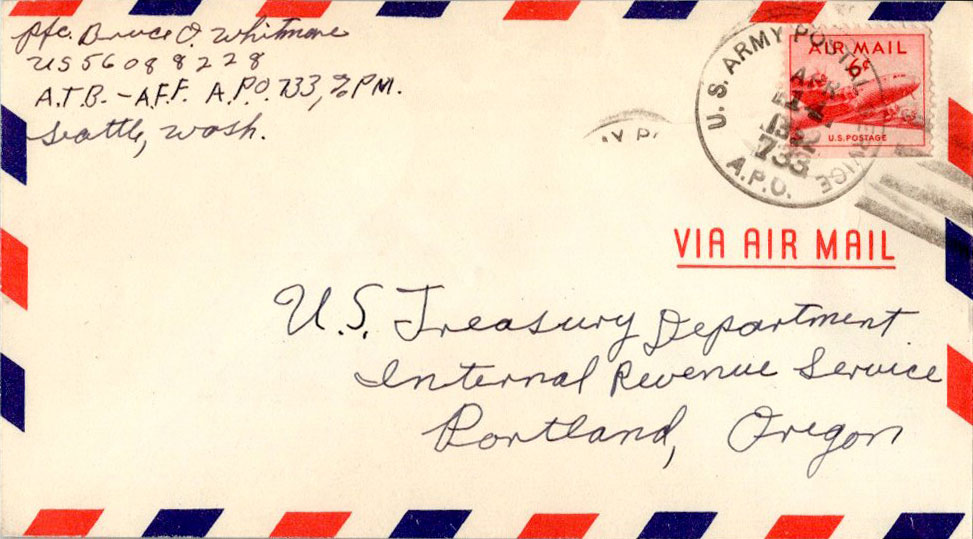 Pfc. Bruce O. Whitmore
US56088228
A.T.B. - A.F.F. A.P.O. 733, % PM.
Seattle, Wash.
U.S. ARMY POSTAL SERVICE
APR
14
1952
733
A.P.O.
AIR MAIL
6¢
U.S. POSTAGE
VIA AIR MAIL
U.S. Treasury Department
Internal Revenue Service
Portland, Oregon